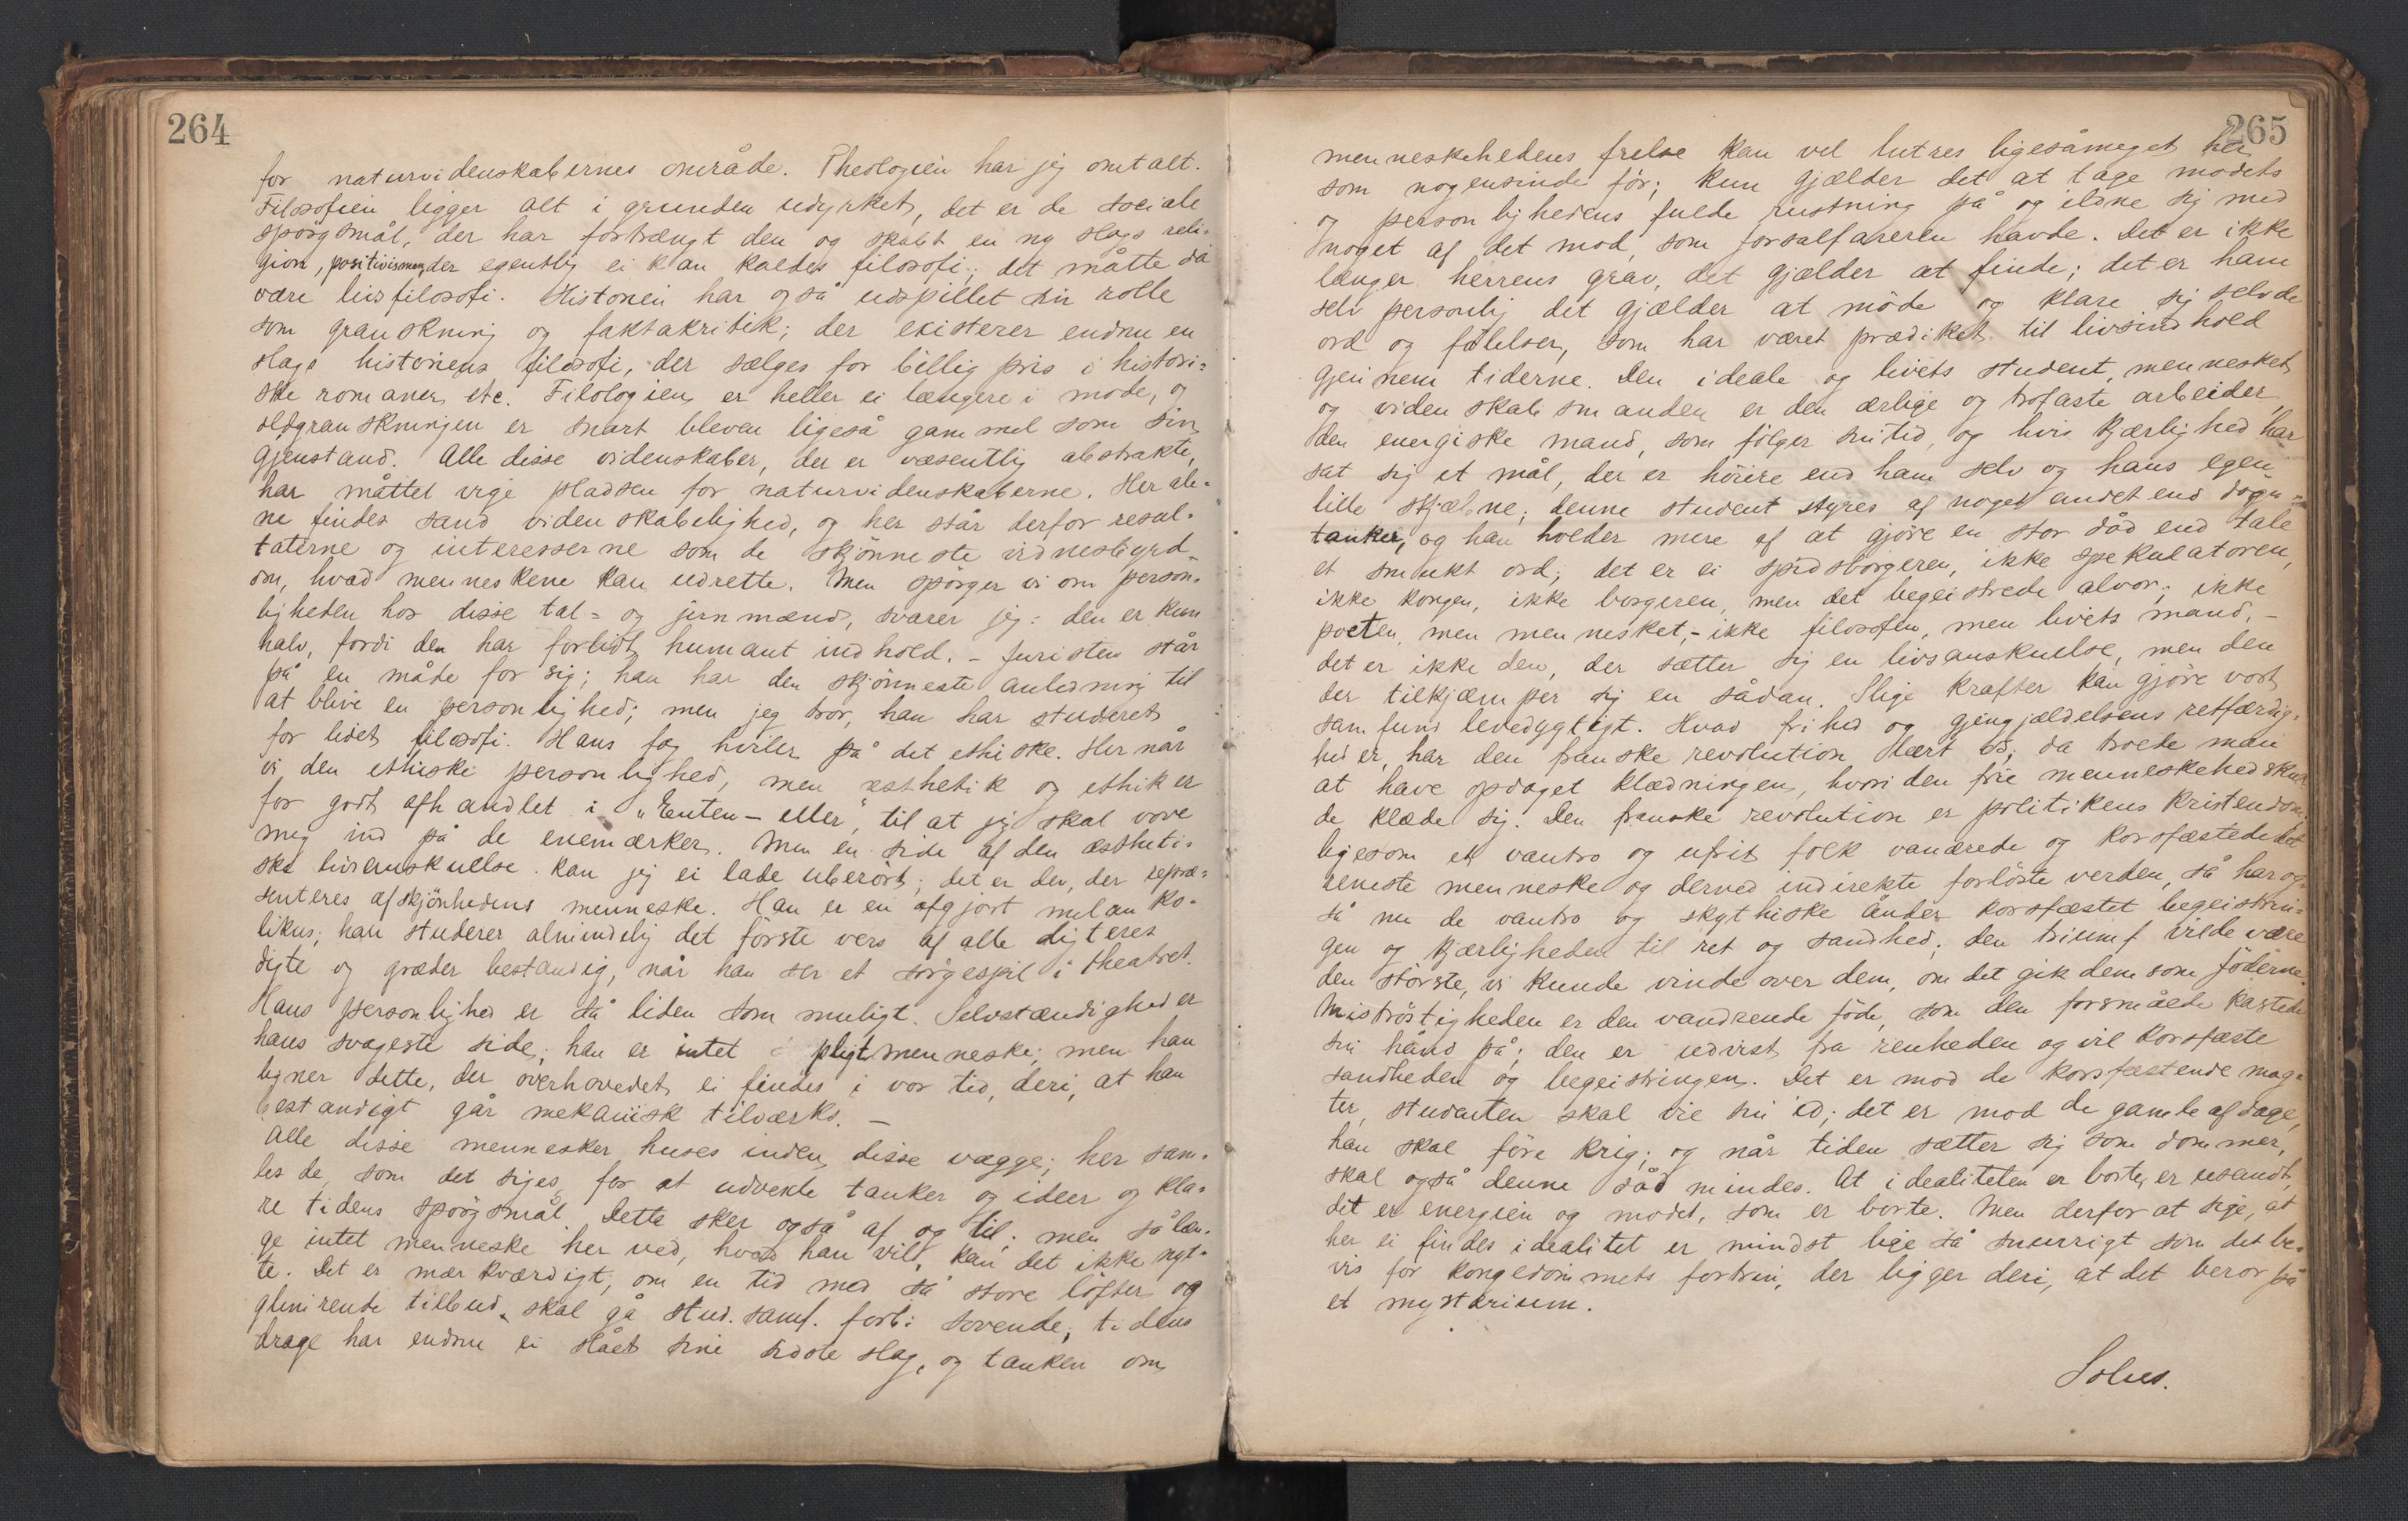 264
for naturvidenskabernes område. Theologien har jeg omtalt.
Filosofien ligger alt i grunden udyrket, det er de sociale
spörgsmål, der har fortrængt den og skabt en ny slags reli-
gion, positivismen, der egentlig ei kan kaldes filosofi; det måtte da
være livsfilosofi. Historien har også udspillet sin rolle
som granskning og faktakritik; der existerer endnu en
slags historiens filosofi, der sælges for billig pris i histori-
ske romaner etc. Filologien er heller ei længere i mode, og
oldgranskningen er snart bleven ligeså gammel som sin
gjenstand. Alle disse videnskaber, der er væsentlig abstrakte,
har måttet vige pladsen for naturvidenskaberne. Her ale-
ne findes sand videnskabelighed, og her står derfor resul-
taterne og interesserne som de skjönneste vidnesbyrd
om, hvad menneskene kan udrette. Men spörger vi om person-
ligheden hos disse tal- og jernmænd, svarer jeg: den er kun
halv, fordi den har forlidt humant indhold. - Juristen står
på en måde for sig; han har den skjönneste anledning til
at blive en personlighed; men jeg tror, han har studeret
for lidet filosofi. Hans fag hviler på det ethiske. Her når
vi den ethiske personlighed, men æsthetik og ethik er
for godt afhandlet i "Enten - eller", til at jeg skal vove
mig ind på de enemærker. Men en side af den æstheti-
ske livsanskuelse kan jeg ei lade uberört; det er den, der repræ-
senteres af skjönhedens menneske. Han er en afgjort melanko-
likus; han studerer almindelig det förste vers af alle digteres
digte og græder bestandig, når han ser et sörgespil i theatret.
Hans personlighed er så liden som muligt. Selvstændighed er
hans svageste side; han er intet pligtmenneske; men han
ligner dette, der overhovedet ei findes i vor tid, deri, at han
bestandigt går mekanisk tilværks. -
Alle disse mennesker huses inden disse vægge; her sam-
les de, som det siges, for at udvexle tanker og ideer og kla-
re tidens spörgsmål. Dette sker også af og til; men sålæn-
ge intet menneske her ved, hvad han vil, kan det ikke nyt-
te. Det er mærkværdigt, om en tid med så store löfter og
glimrende tilbud skal gå stud. samf. forbi sovende; tidens
drage har endnu ei slået sine sidste slag, og tanken om
265
menneskehedens frelse kan vel lutres ligesåmeget her
som nogensinde för; kun gjælder det at tage modets
og personlighedens fulde rustning på og ildne sig med
noget af det mod, som jorsalfareren havde. Det er ikke
længer herrens grav, det gjælder at finde; det er ham
selv personlig det gjælder at möde og klare sig selv de
ord og fölelser, som har været prædiket til livsindhold
gjennem tiderne. Den ideale og livets student, mennesket
og videnskabsmanden er den ærlige og trofaste arbeider,
den energiske mand, som fölger sin tid, og hvis kjærlighed har
sat sig et mål, der er höiere end ham selv og hans egen
lille skjæbne; denne student styres af noget andet end dögn-
tanker, og han holder mere af at gjöre en stor dåd end tale
et smukt ord; det er ei spidsborgeren, ikke spekulatoren,
ikke kongen, ikke borgeren, men det begeistrede alvor; ikke
poeten, men mennesket, - ikke filosofen, men livets mand, -
det er ikke den, der sætter sig en livsanskuelse, men den
der tilkjæmper sig en sådan. Slige kræfter kan gjöre vort
samfund levedygtigt. Hvad frihed og gjengjældelsens retfærdig-
hed er, har den franske revolution lært os; da troede man
at have opdaget klædningen, hvori den frie menneskehed skul-
de klæde sig. Den franske revolution er politikens kristendom;
ligesom et vantro og ufrit folk vanærede og korsfæstede det
reneste menneske og derved indirekte forlöste verden, så har og-
så nu de vantro og skythiske ånder korsfæstet begeistrin-
gen og kjærligheden til ret og sandhed; den triumf vilde være
den störste, vi kunde vinde over dem, om det gik dem som jöderne.
Miströstigheden er den vandrende jöde, som den forsmåede kastede
sin hånd på; den er udvist fra renheden og vil korsfæste
sandheden og begeistringen. Det er mod de korsfæstende mag-
ter, studenten skal vie sin id; det er mod de gamle af dage,
han skal före krig; og når tiden sætter sig som dommer,
skal også denne dåd mindes. At idealiteten er borte, er usandt,
det er energien og modet, som er borte. Men derfor at sige, at
her ei findes idealitet er mindst lige så snurrigt som det be-
vis for kongedömmets fortrin, der ligger deri, at det beror på
et mysterium.
Solus.